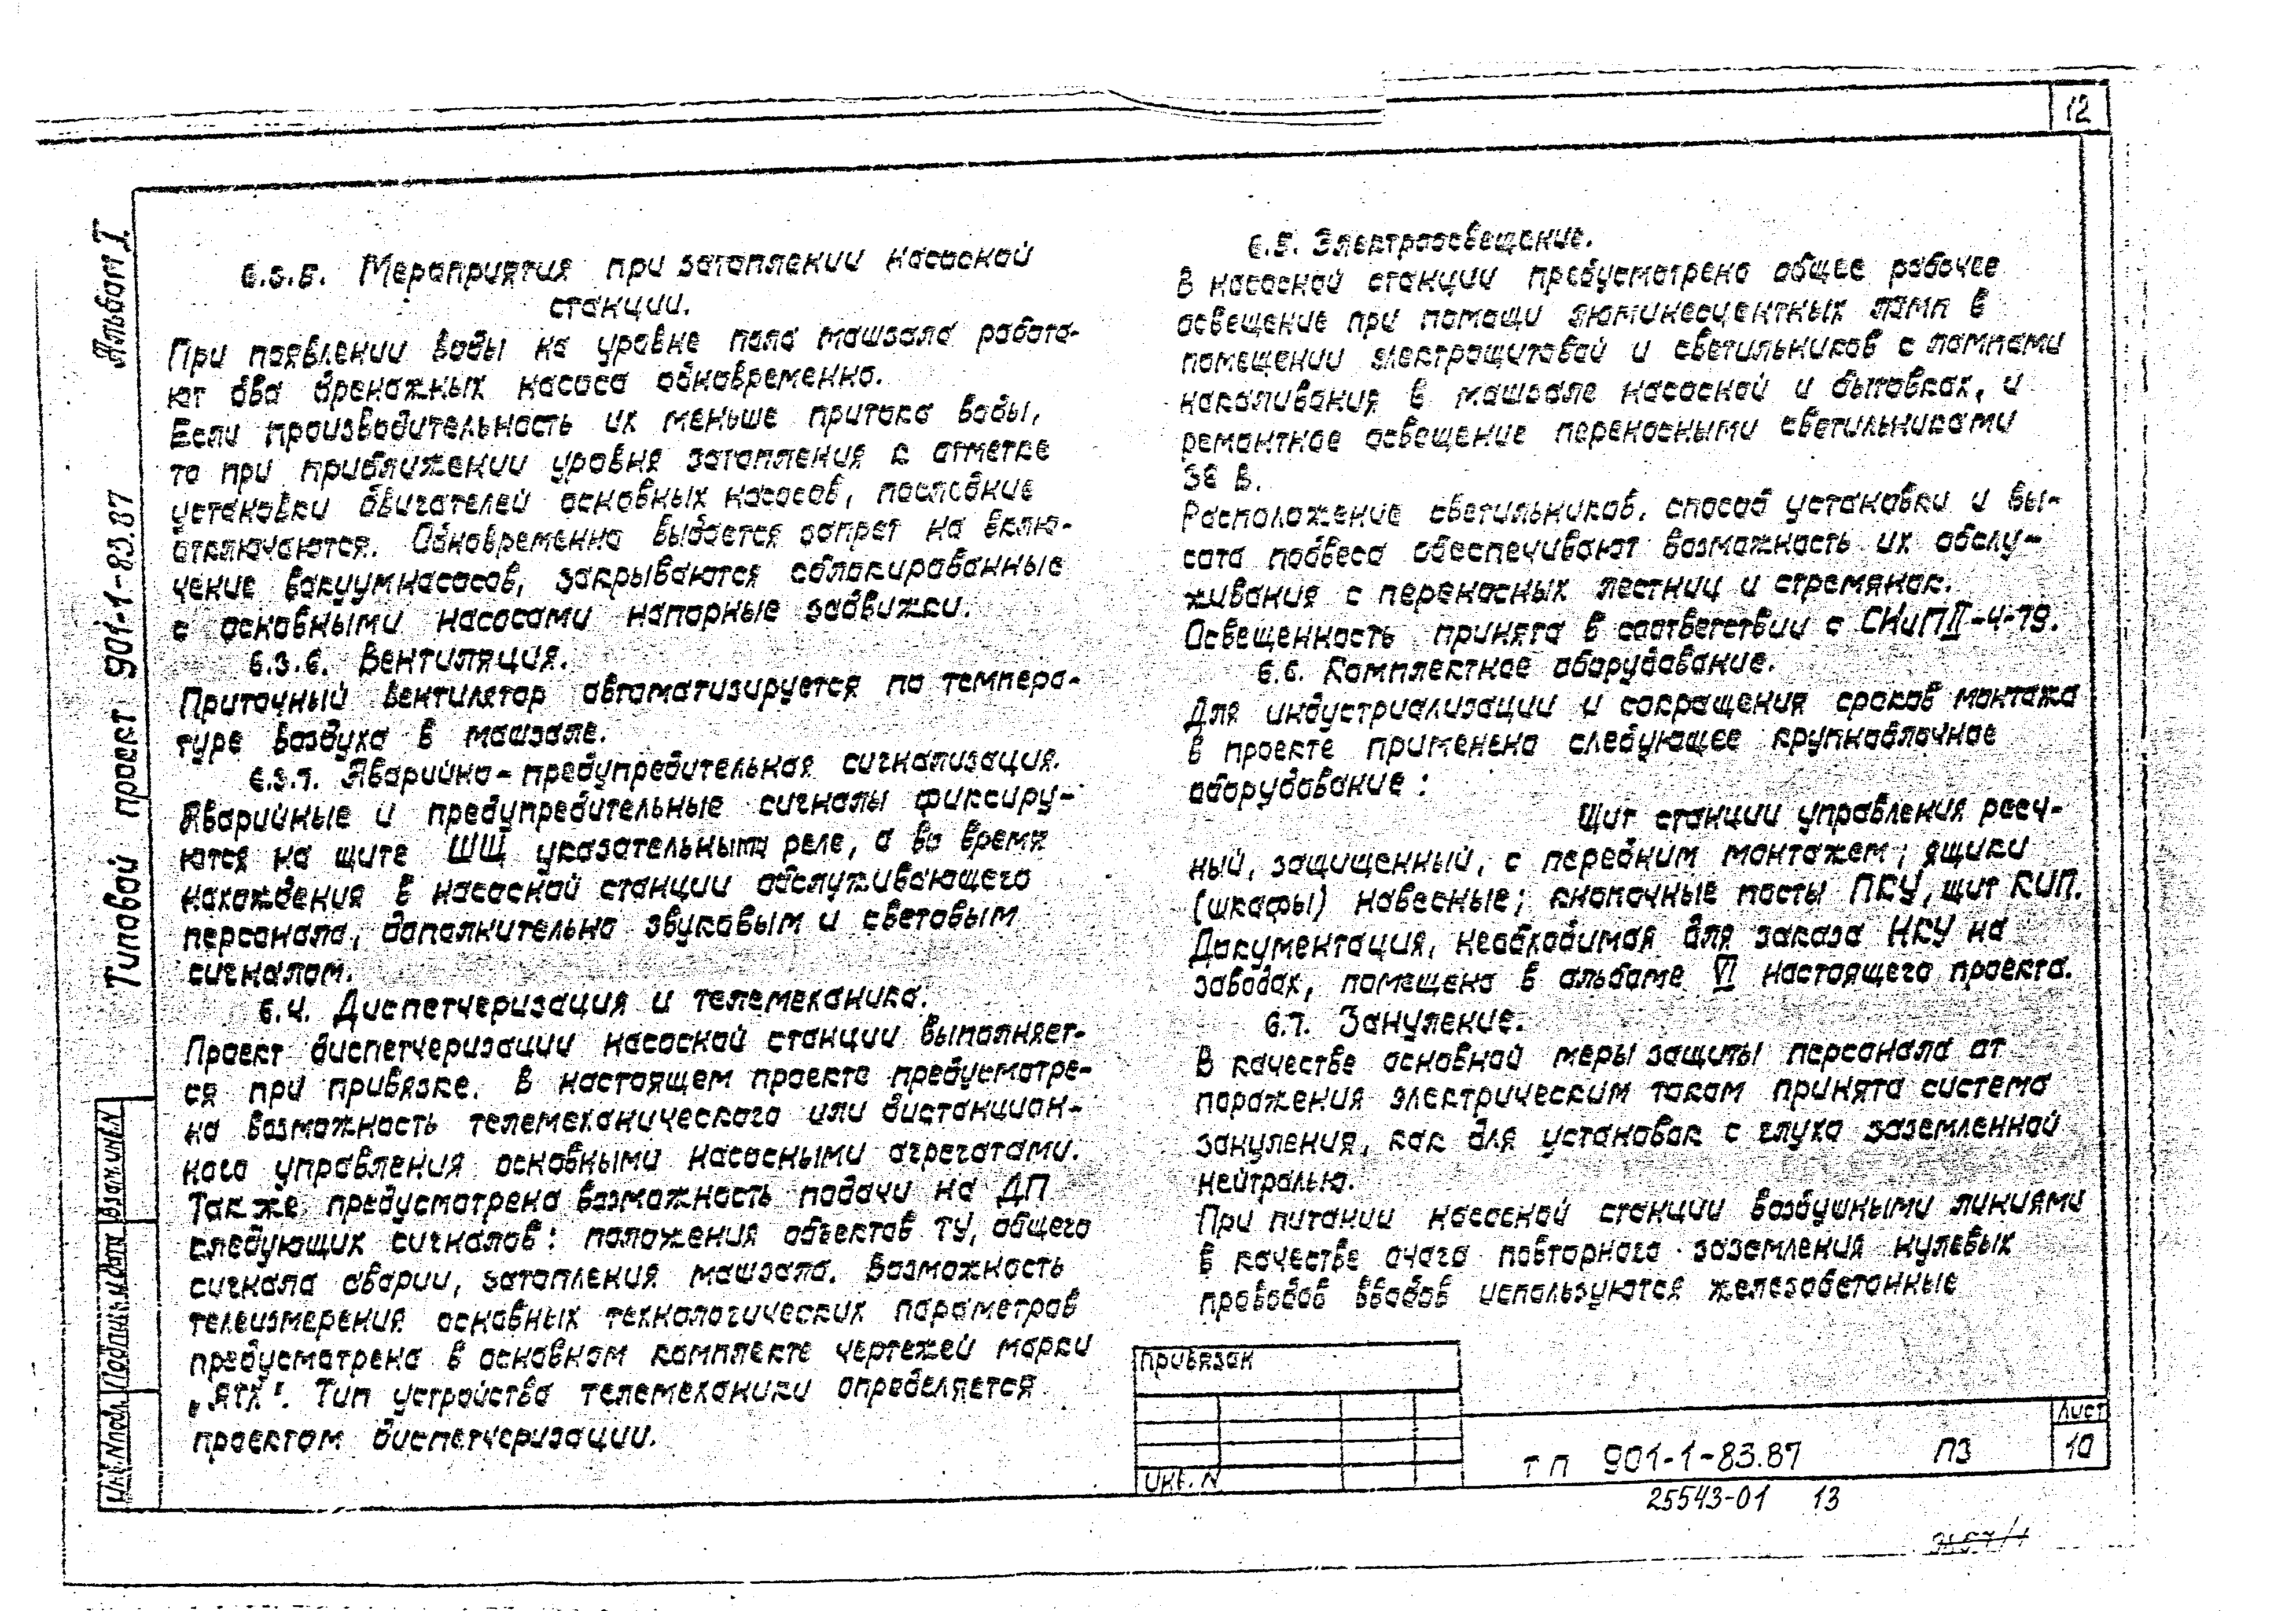 12
Альбом I
Типовой проект 901-1-83.87
6.3.5. Мероприятия при затоплении насосной
станции.
При появлении воды на уровне пола машзала работа-
ют два дренажных насоса одновременно.
Если производительность их меньше притока воды,
то при приближении уровня затопления к отметке
установки двигателей основных насосов, последние
отключаются. Одновременно выдается запрет на вклю-
чение вакуумнасосов, закрываются сблокированные
с основными насосами напорные задвижки.
6.3.6. Вентиляция.
Приточный вентилятор автоматизируется по темпера-
туре воздуха в машзале.
6.3.7. Аварийно-предупредительная сигнализация.
Аварийные и предупредительные сигналы фиксиру-
ются на щите ШЩ указательными реле, а во время
нахождения в насосной станции обслуживающего
персонала, дополнительно звуковым и световым
сигналом.
6.4. Диспетчеризация и телемеханика.
Проект диспетчеризации насосной станции выполняет-
ся при привязке. В настоящем проекте предусмотре-
на возможность телемеханического или дистанцион-
ного управления основными насосными агрегатами.
Также предусмотрена возможность подачи на ДП
следующих сигналов: положения объектов ТУ, общего
сигнала аварии, затопления машзала. Возможность
телеизмерения основных технологических параметров
предусмотрена в основном комплекте чертежей марки
„АТХ". Тип устройства телемеханики определяется
проектом диспетчеризации.
6.5. Электроосвещение.
В насосной станции предусмотрено общее рабочее
освещение при помощи люминесцентных ламп в
помещении электрощитовой и светильников с лампами
накаливания в машзале насосной и бытовках, и
ремонтное освещение переносными светильниками
36 В.
Расположение светильников, способ установки и вы-
сота подвеса обеспечивают возможность их обслу-
живания с переносных лестниц и стремянок.
Освещенность принята в соответствии с СНиП II-4-79.
6.6. Комплектное оборудование.
Для индустриализации и сокращения сроков монтажа
в проекте применено следующее крупноблочное
оборудование:
Щит станции управления рееч-
ный, защищенный, с передним монтажем; ящики
(шкафы) навесные; кнопочные посты ПКУ, щит КИП.
Документация, необходимая для заказа НКУ на
заводах, помещена в альбоме VI настоящего проекта.
6.7. Зануление.
В качестве основной меры защиты персонала от
поражения электрическим током принята система
зануления, как для установок с глухо заземленной
нейтралью.
При питании насосной станции воздушными линиями
в качестве очага повторного заземления нулевых
проводов вводов используются железобетонные
Привязан
Инв. N
ТП 901-1-83.87 ПЗ
Лист
10
25543-01 13
Взам. инв. N
Подпись и дата
Инв. N подл.